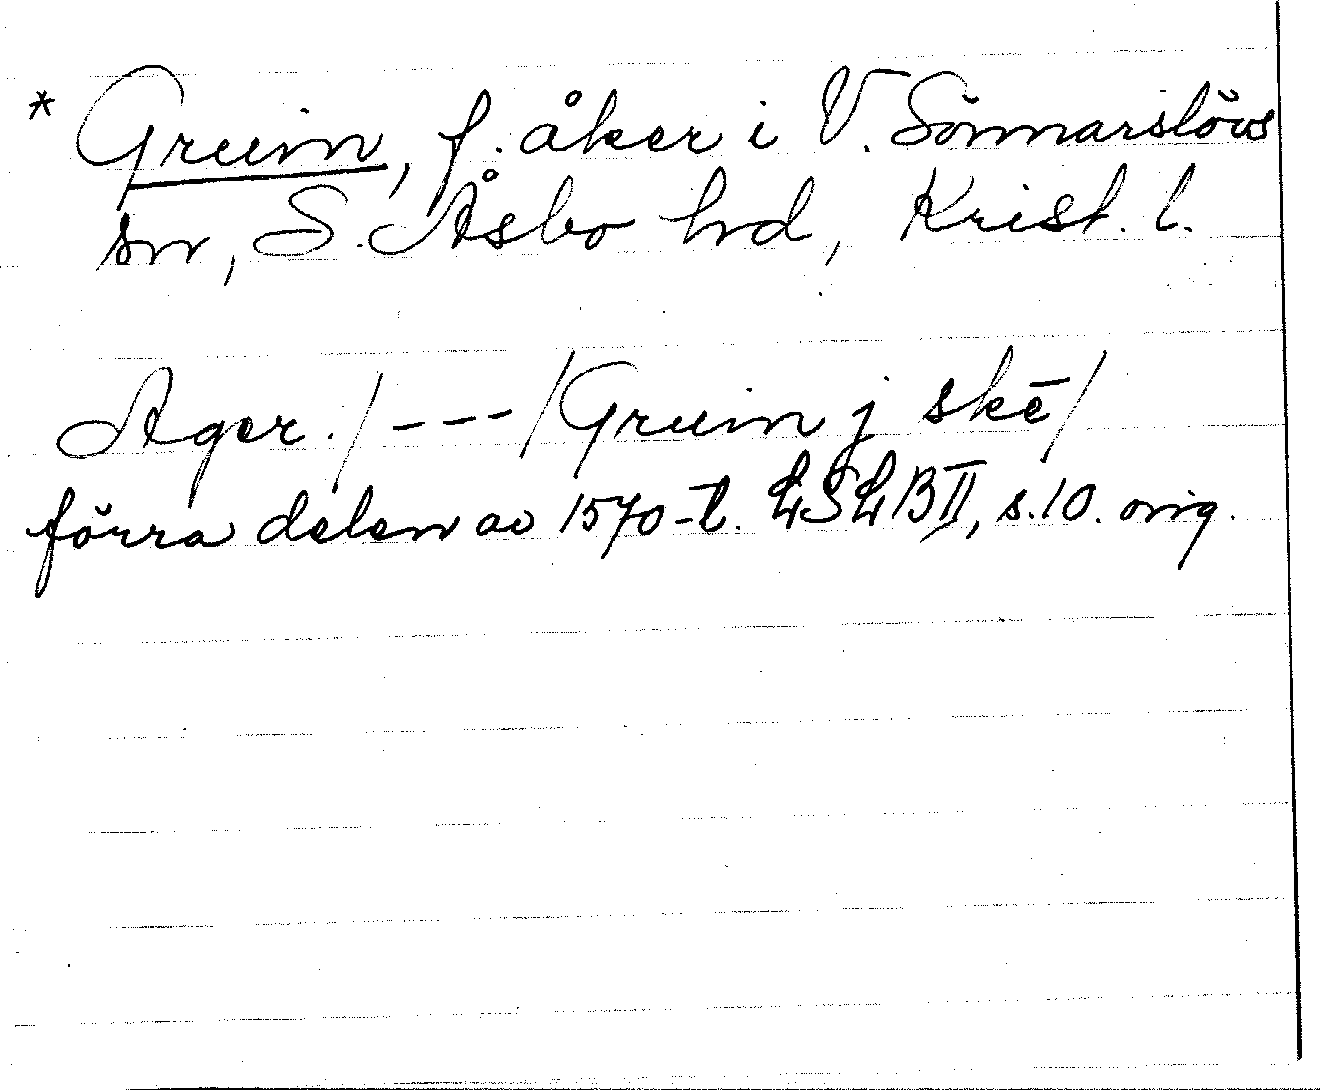 * Gruim, f. åker i V. Sönnarslövs
sn, S. Åsbo hrd, Krist. l.
Ager. / --- / Gruim j skē /
förra delen av 1570-t. LSLB II, s. 10. orig.